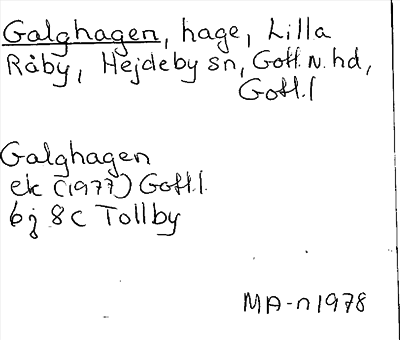 Galghagen, hage, Lilla
Råby, Hejdeby sn, Gotl. N. hd,
Gotl. l
Galghagen
ek (1977) Gotl. l.
6j 8c Tollby
MA-n 1978